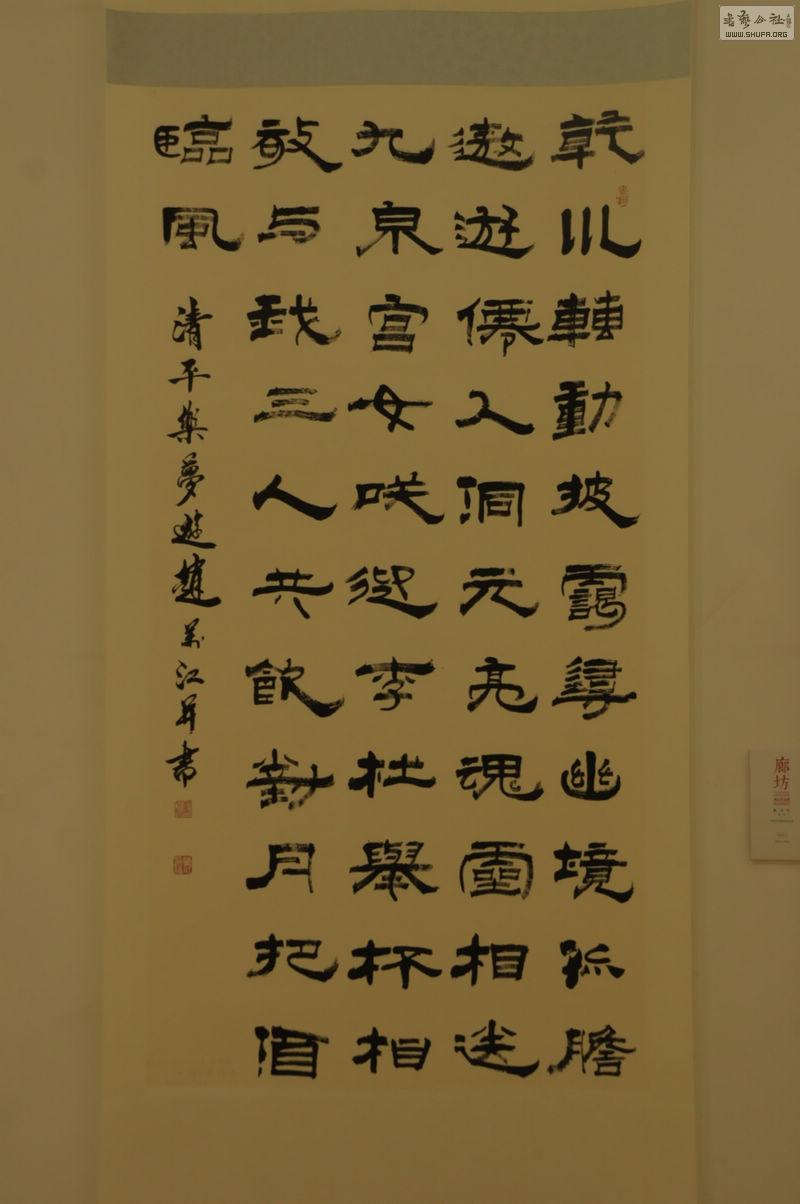 乾川轉動披靄尋幽境孤膽
遨遊僊人洞元亮魂靈相送
九泉宮女咲迎李杜舉杯相
敬与我三人共飲對月把酒
臨風
清平樂夢遊趙萬江并書
書藝公社
WWW.SHUFA.ORG
廊坊